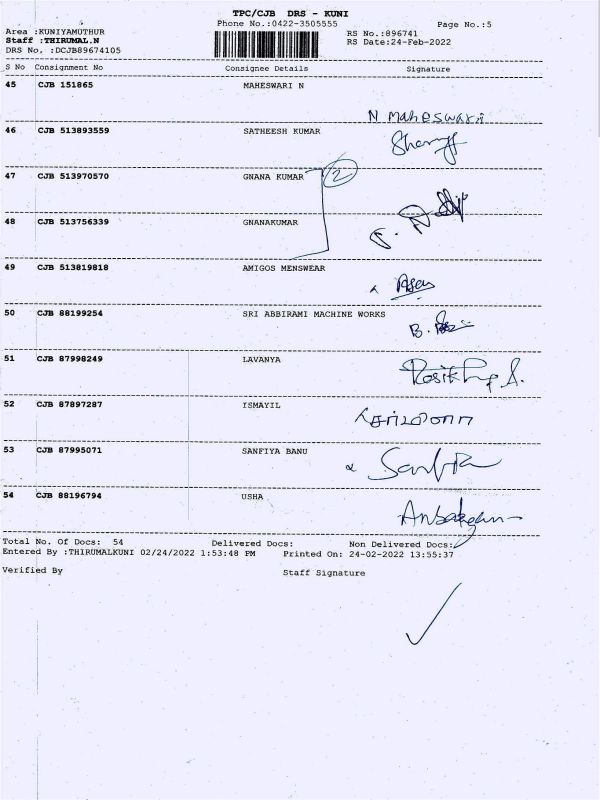 TPC/CJB DRS - KUNI
Phone No.:0422-3505555 Page No.:5
Area :KUNIYAMUTHUR RS No.:896741
Staff :THIRUMAL.N RS Date:24-Feb-2022
DRS No. :DCJB89674105
S No Consignment No Consignee Details Signature
45 CJB 151865 MAHESWARI N
N Maheswari
46 CJB 513893559 SATHEESH KUMAR
47 CJB 513970570 GNANA KUMAR 2
48 CJB 513756339 GNANAKUMAR
49 CJB 513819818 AMIGOS MENSWEAR
50 CJB 88199254 SRI ABBIRAMI MACHINE WORKS
B.
51 CJB 87998249 LAVANYA
52 CJB 87897287 ISMAYIL
53 CJB 87995071 SANFIYA BANU
54 CJB 88196794 USHA
Total No. Of Docs: 54 Delivered Docs: Non Delivered Docs:
Entered By :THIRUMALKUNI 02/24/2022 1:53:48 PM Printed On: 24-02-2022 13:55:37
Verified By Staff Signature